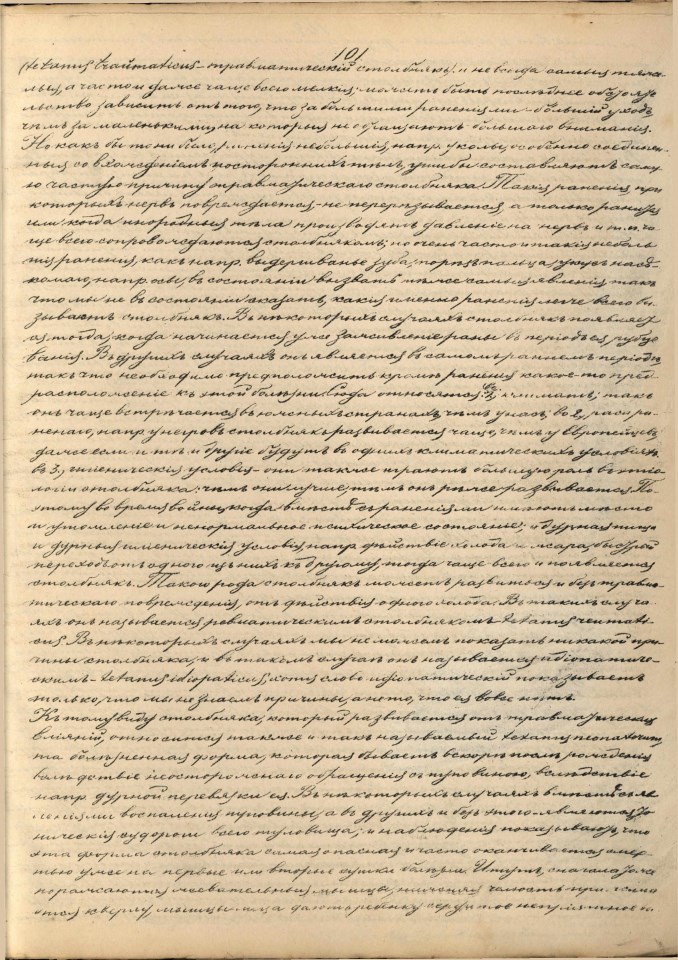 101
(tetanus traumaticus - травматическій столбнякъ) и не всегда самыя тяже-
лыя, а часто и даже чаще всего мелкія; можетъ быть послѣднее обстоя-
тельство зависитъ отъ того, что за большими раненіями - большій уходъ,
чѣмъ за маленькими, на которыя не обращаютъ большаго вниманія.
Но какъ бы то ни было, раненія небольшія, напр. уколы, особенно соединен-
ныя со вхожденіемъ постороннихъ тѣлъ, ушибы составляютъ саму-
ю частую причину травматическаго столбняка. Такія раненія, при
которыхъ нервъ повреждается - не перерѣзывается, а только раненъ
или когда инородныя тѣла производятъ давленіе на нервъ и т. п. ча-
ще всего сопровождаются столбнякомъ; но очень часто и такія неболь-
шія раненія, какъ напр. выдергиванье зуба, порѣзъ пальца, укусъ насѣ-
комаго, напр. осы, въ состояніи вызвать тѣ же самыя явленія, такъ
что мы не въ состояніи сказать, какія именно раненія легче всего вы-
зываютъ столбнякъ. Въ нѣкоторыхъ случаяхъ столбнякъ появляет-
ся тогда, когда начинается уже заживленіе раны въ періодъ ея рубце-
ванія. Въ другихъ случаяхъ онъ является въ самомъ раннемъ періодѣ
такъ что необходимо предположить кромѣ раненія какое-то пред-
расположеніе къ этой болѣзни. Сюда относятся въ 1, климатъ; такъ
онъ чаще встрѣчается въ южныхъ странахъ, чѣмъ у насъ; во 2, раса ра-
ненаго, напр. у негровъ столбнякъ развивается чаще, чѣмъ у Европейцевъ
даже если и тѣ и другіе будутъ въ однѣхъ климатическихъ условіяхъ
въ 3, гигіеническія условія - они также играютъ большую роль въ этіо-
логіи столбняка: чѣмъ они лучше, тѣмъ онъ рѣже развивается. По-
этому во время войны, когда вмѣстѣ съ раненіями имѣютъ мѣсто
и утомленіе и ненормальное психическое состояніе, и дурная пища
и дурныя гигіеническія условія, напр. дѣйствіе холода и жара, быстрый
переходъ отъ одного изъ нихъ къ другому, тогда чаще всего и появляется
столбнякъ. Такого рода столбнякъ можетъ развиться и безъ травма-
тическаго поврежденія, отъ дѣйствія одного холода. Въ такихъ случа-
яхъ онъ называется ревматическимъ столбнякомъ - tetanus reumati-
cus. Въ нѣкоторыхъ случаяхъ мы не можемъ показать никакой при-
чины столбняка, и въ такомъ случаѣ онъ называется идіопатиче-
скимъ - tetanus idiopaticus, хотя слово идіопатическій показываетъ
только, что мы не знаемъ причины, а не то, что ея вовсе нѣтъ.
Къ тому виду столбняка, который развивается отъ травматическихъ
вліяній, относится также и такъ называемый tetanus neonatorum,
та болѣзненная форма, которая бываетъ вскорѣ послѣ рожденія
вслѣдствіе неосторожнаго обращенія съ пуповиною, вслѣдствіе
напр. дурной перевязки ея. Въ нѣкоторыхъ случаяхъ вмѣстѣ съ яв-
леніями воспаленія пуповины, а во другихъ и безъ этого являются то-
ническія судороги всего туловища; и наблюденія показываютъ, что
эта форма столбняка самая опасная и часто оканчивается смер-
тью уже на первые или вторые сутки болѣзни. Итутъ, сначала
поражаются жевательныя мышцы, нижняя челюсть
кверху, мышцы лица даютъ ребенку сердитое непріятное